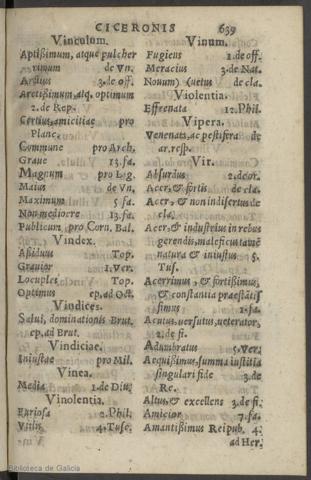 CICERONIS 639
Vinculum.
Aptissimum, atque pulcher
rimum de Vn.
Arctius 3. de off.
Arctissimum, atq. optimum
2. de Rep.
Certius, amicitiae pro
Planc.
Commune pro Arch.
Graue 13. fa.
Magnum pro Lig.
Maius de Vn.
Maximum 5 fa.
Non mediocre 13. fa.
Publicum pro Corn. Bal.
Vindex.
Assiduus Top.
Grauior 1. Ver.
Locuples Top.
Optimus ep, ad Oct.
Vindices.
Salui, dominationis Brut.
ep, ad Brut.
Vindiciae.
Iniustae pro Mil.
Vinea.
Media 1. de Diu.
Vinolentia.
Furiosa 2. Phil.
Vitis 4. Tusc.
Vinum.
Fugiens 1. de off.
Meracius 3. de Nat.
Nouum) (uetus de cla.
Violentia.
Effrenata 12. Phil.
Vipera.
Venenata, ac pestifera de
ar. resp.
Vir.
Absurdus 2. de or.
Acer, & fortis de cla.
Acer, & non indisertus de
cla.
Acer, & industrius in rebus
gerendis, maleficus tamē
natura & iniustus 5.
Tus.
Acerrimus, & fortissimus,
& constantia praestātis
simus 1. fa.
Acutus, uersutus, ueterator,
2. de fi.
Adumbratus 5. Ver.
Aequissimus, summa iustitia
singulari fide 3. de
Re.
Altus, & excellens 3. de fi.
Amicior 7. fa.
Amantissimus Reipub. 4.
ad Her.
Biblioteca de Galicia